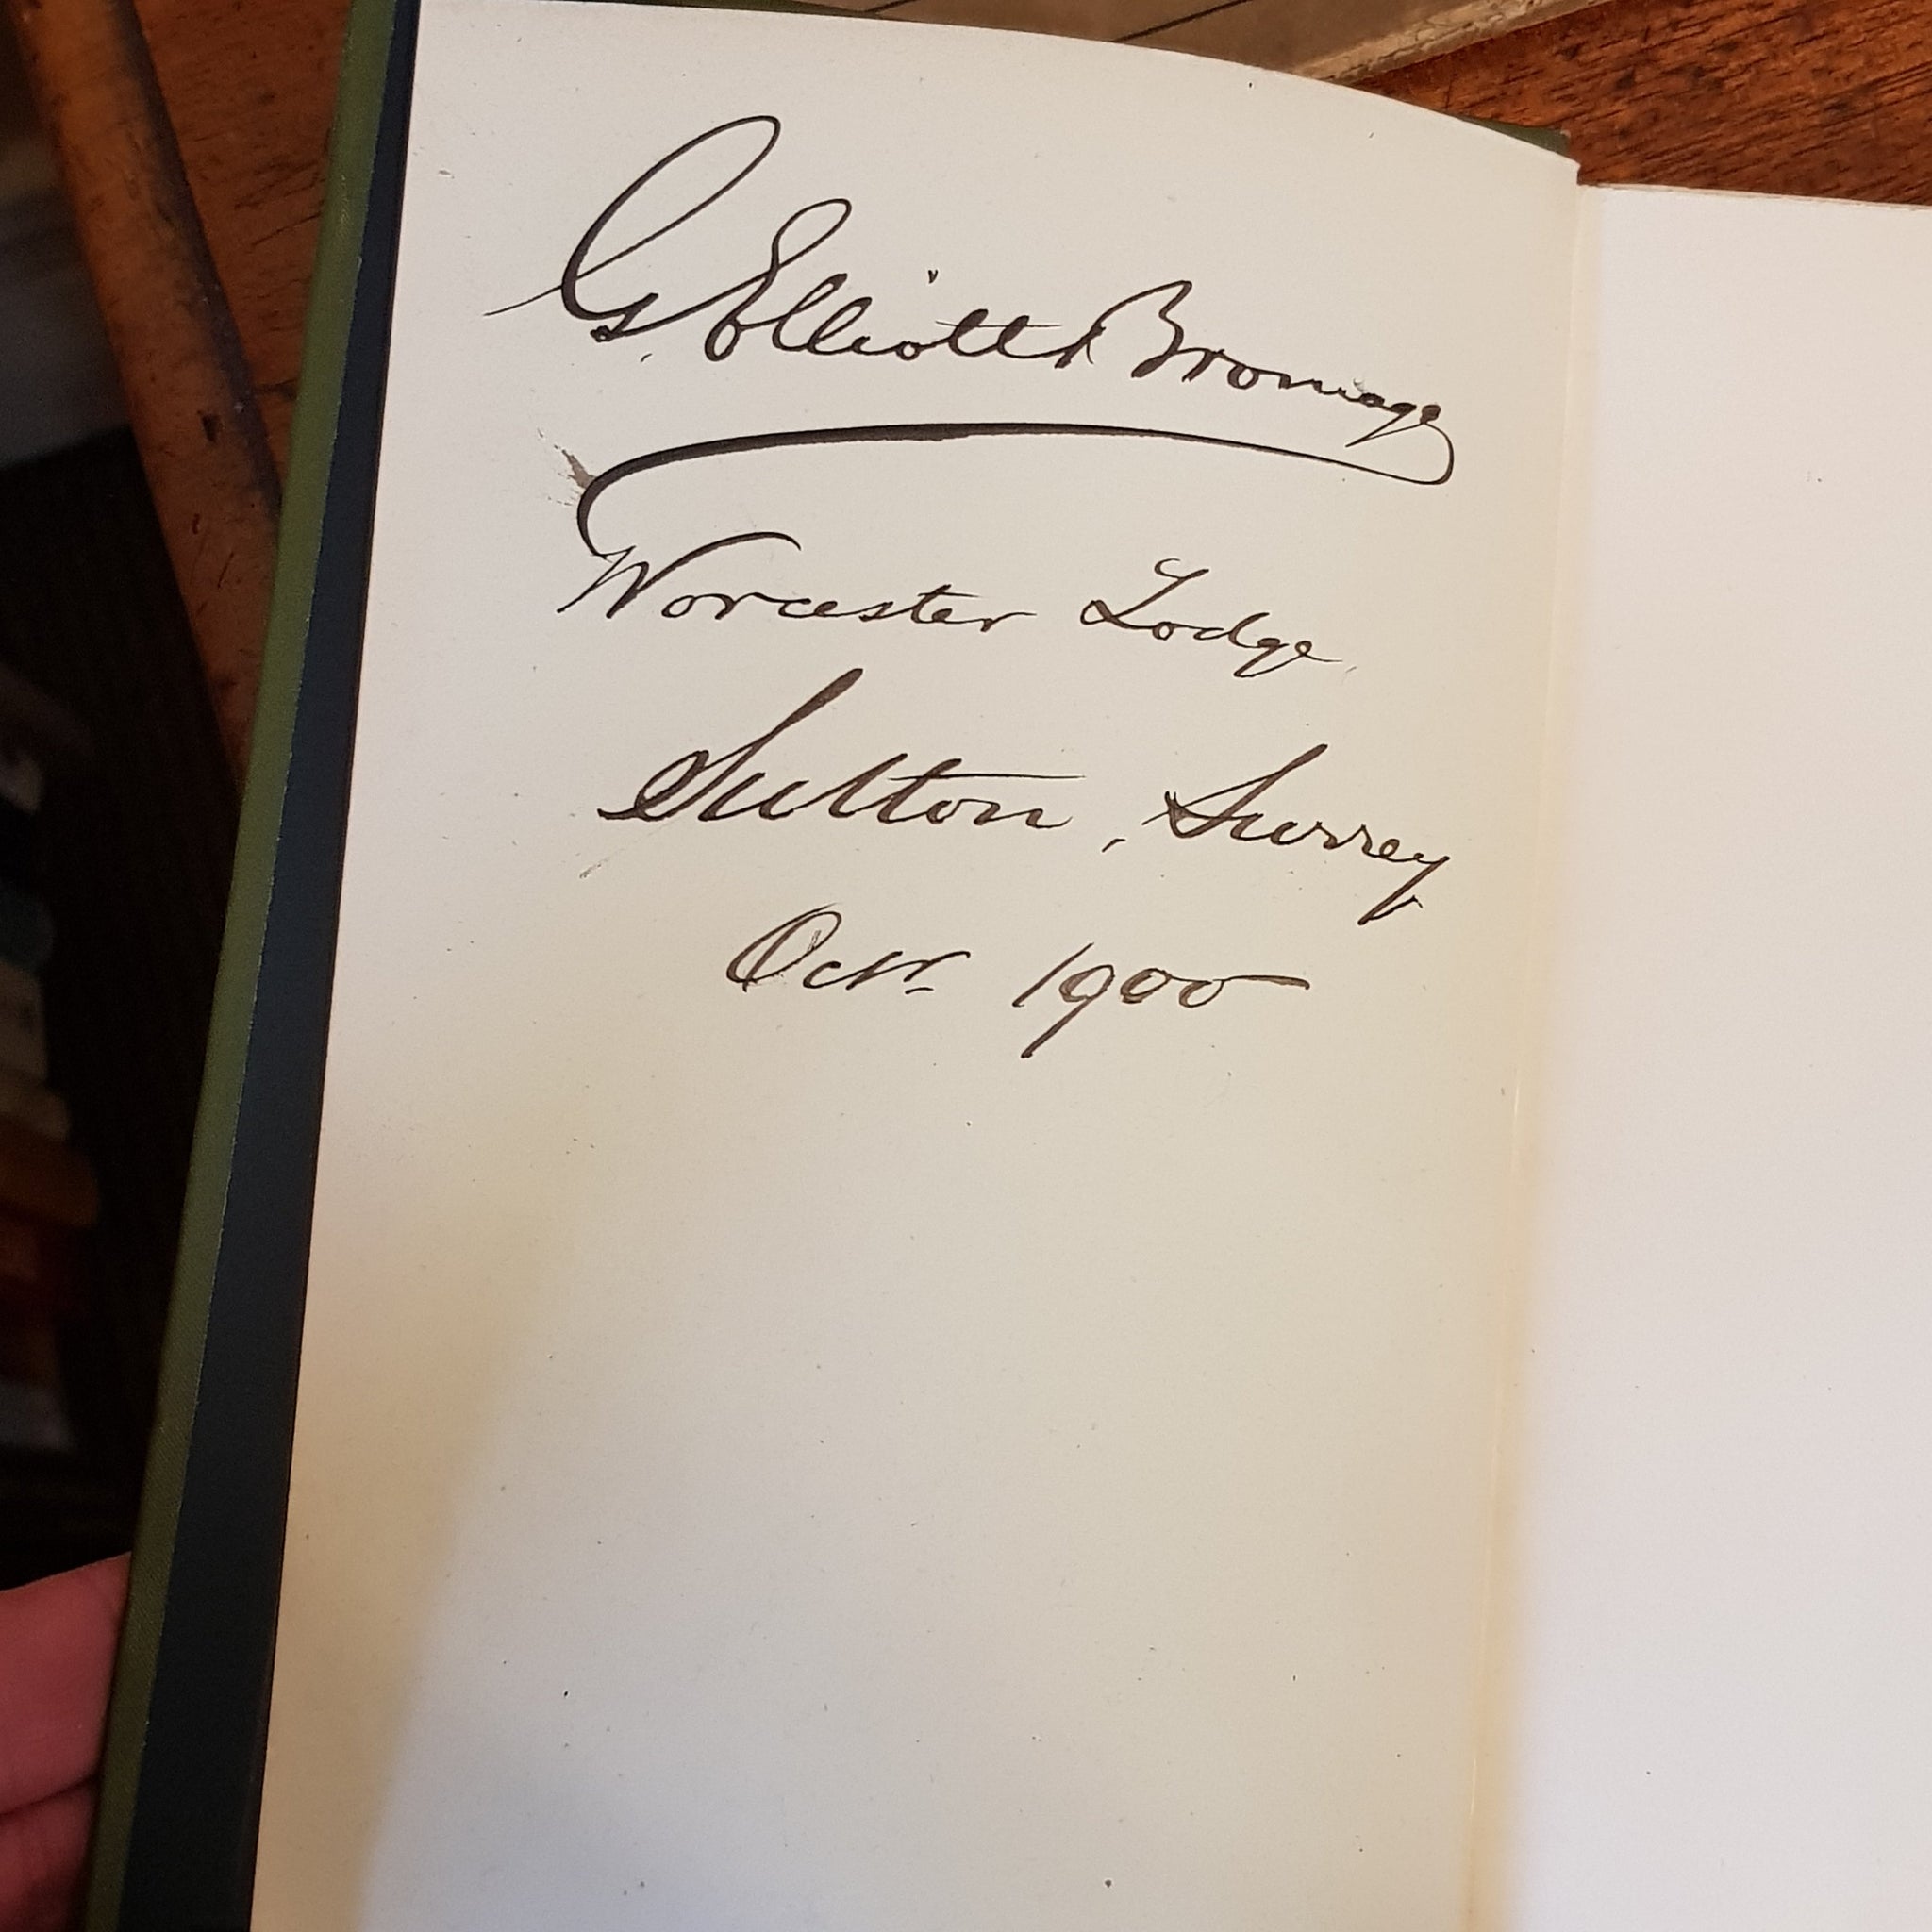 G. Elliott Bromage
Worcester Lodge,
Sutton, Surrey
Octr 1900